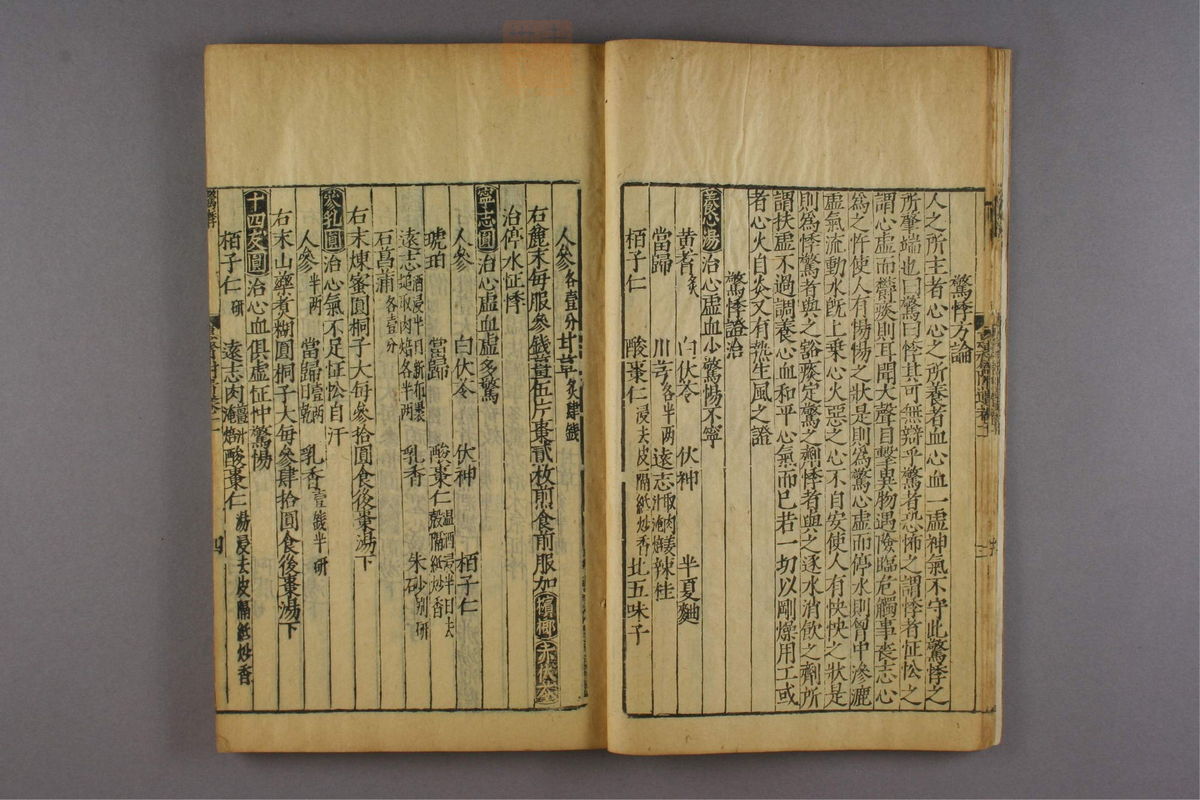 驚悸方論
人之所主者心心之所養者血心血一虛神氣不守此驚悸之
所肇端也曰驚曰悸其可無辯乎驚者恐怖之謂悸者怔忪之
謂心虛而鬱痰則耳聞大聲目擊異物遇險臨危觸事喪志心
為之忤使人有惕惕之狀是則為驚心虛而停水則胷中滲漉
虛氣流動水旣上乗心火惡之心不自安使人有怏怏之狀是
則為悸驚者與之豁痰定驚之劑悸者與之逐水消飲之劑所
謂扶虛不過調養心血和平心氣而已若一切以剛燥用工或
者心火自炎又有熱生風之證
驚悸證治
養心湯 治心虛血少驚惕不寧
黄耆炙 白伏苓 伏神 半夏麯
當歸 川芎各半两 遠志取肉姜汁淹焙 辣桂
栢子仁 酸棗仁浸去皮隔紙炒香 北五味子
人參各壹分 甘草炙肆錢
右麄末每服參錢薑伍片棗貳枚煎食前服加檳榔赤伏苓
治停水怔悸
寧志圓 治心虛血虛多驚
人參 白伏苓 伏神 栢子仁
琥珀 當歸 酸棗仁温酒浸半日去殻隔紙炒香
遠志酒浸半日新布裹槌取肉焙各半两 乳香 朱砂別研
石菖蒲各壹分
右末煉蜜圓桐子大每參拾圓食後棗湯下
參乳圓 治心氣不足怔忪自汗
人參半两 當歸壹两 乳香壹錢半研
右末山藥煮糊圓桐子大每參肆拾圓食後棗湯下
十四友圓 治心血俱虛怔忡驚惕
栢子仁研 遠志肉 酸棗仁湯浸去皮隔紙炒香
驚悸
四